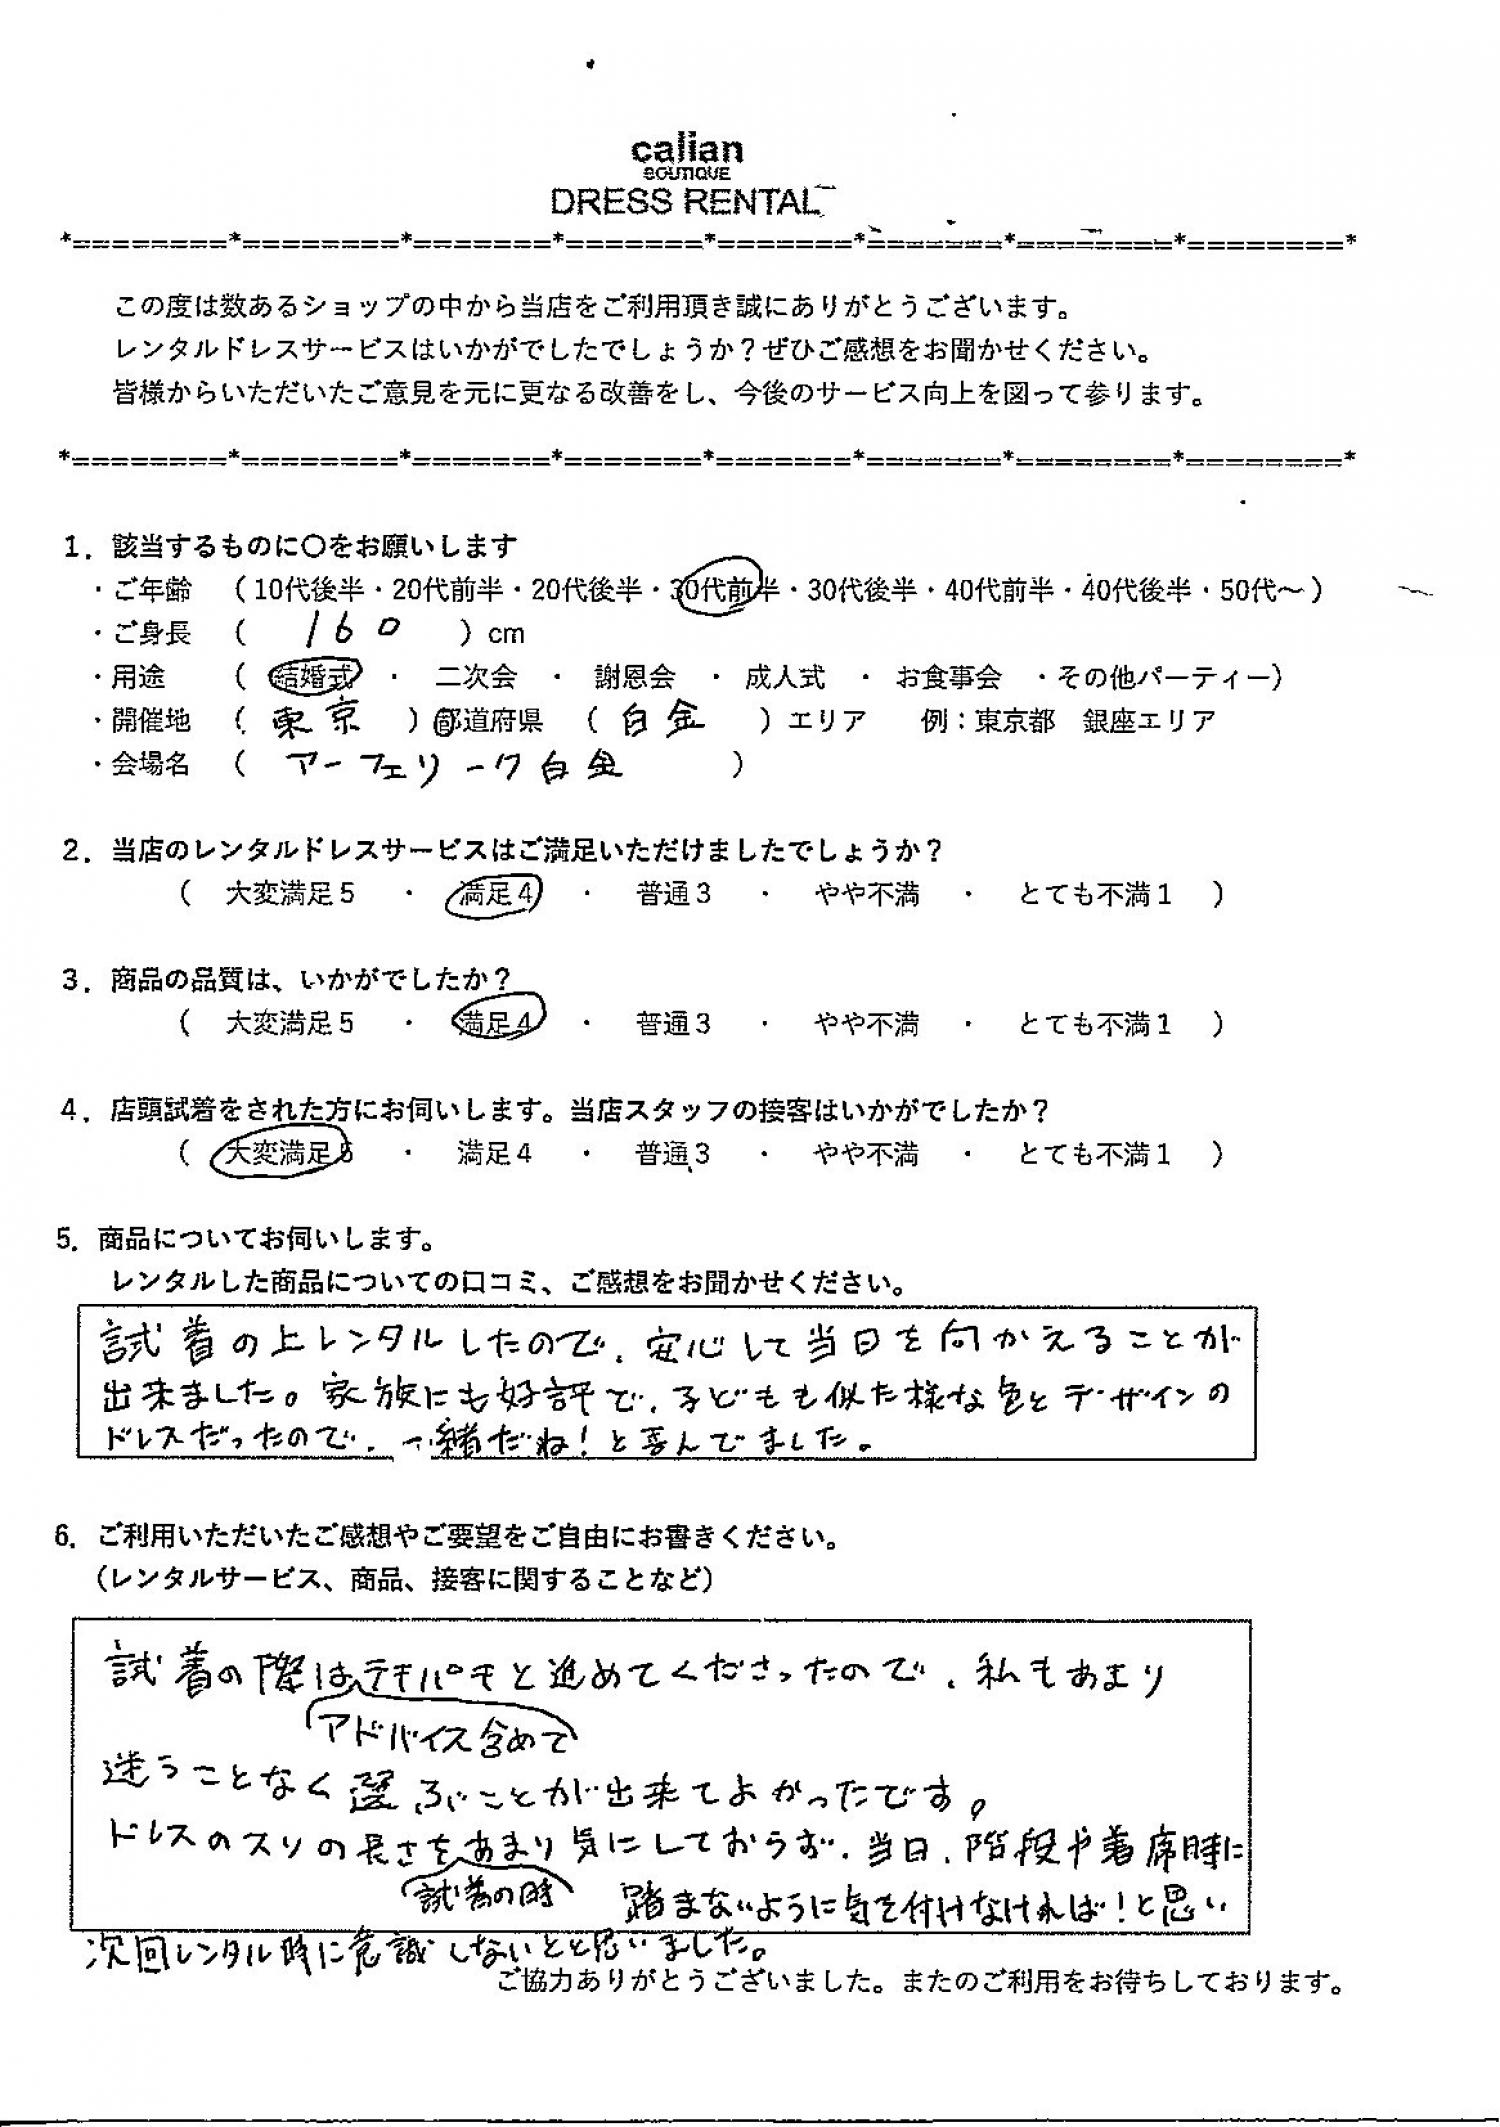 calian
BOUTIQUE
DRESS RENTAL
*========*========*=======*=======*=======*=======*========*========*
この度は数あるショップの中から当店をご利用頂き誠にありがとうございます。
レンタルドレスサービスはいかがでしたでしょうか？ぜひご感想をお聞かせください。
皆様からいただいたご意見を元に更なる改善をし、今後のサービス向上を図って参ります。
*========*========*=======*=======*=======*=======*========*========*
1．該当するものに〇をお願いします
・ご年齢 （10代後半・20代前半・20代後半・30代前半・30代後半・40代前半・40代後半・50代～）
・ご身長 （ 160 ）cm
・用途 （ 結婚式 ・ 二次会 ・ 謝恩会 ・ 成人式 ・ お食事会 ・その他パーティー）
・開催地 （ 東京 ）都道府県 （ 白金 ）エリア 例：東京都 銀座エリア
・会場名 （ アーフェリーク白金 ）
2．当店のレンタルドレスサービスはご満足いただけましたでしょうか？
（ 大変満足５ ・ 満足４ ・ 普通３ ・ やや不満 ・ とても不満１ ）
3．商品の品質は、いかがでしたか？
（ 大変満足５ ・ 満足４ ・ 普通３ ・ やや不満 ・ とても不満１ ）
4．店頭試着をされた方にお伺いします。当店スタッフの接客はいかがでしたか？
（ 大変満足５ ・ 満足４ ・ 普通３ ・ やや不満 ・ とても不満１ ）
5．商品についてお伺いします。
レンタルした商品についての口コミ、ご感想をお聞かせください。
試着の上レンタルしたので、安心して当日を向かえることが
出来ました。家族にも好評で、子どもも似た様な色とデザインの
ドレスだったので、一緒だね！と喜んでました。
6．ご利用いただいたご感想やご要望をご自由にお書きください。
（レンタルサービス、商品、接客に関することなど）
試着の際はテキパキと進めてくださったので、私もあまり
アドバイス含めて
迷うことなく選ぶことが出来てよかったです。
ドレスのスソの長さをあまり気にしておらず、当日、階段や着席時に
試着の時 踏まないように気を付けなければ！と思い
次回レンタル時に意識しないとと思いました。
ご協力ありがとうございました。またのご利用をお待ちしております。